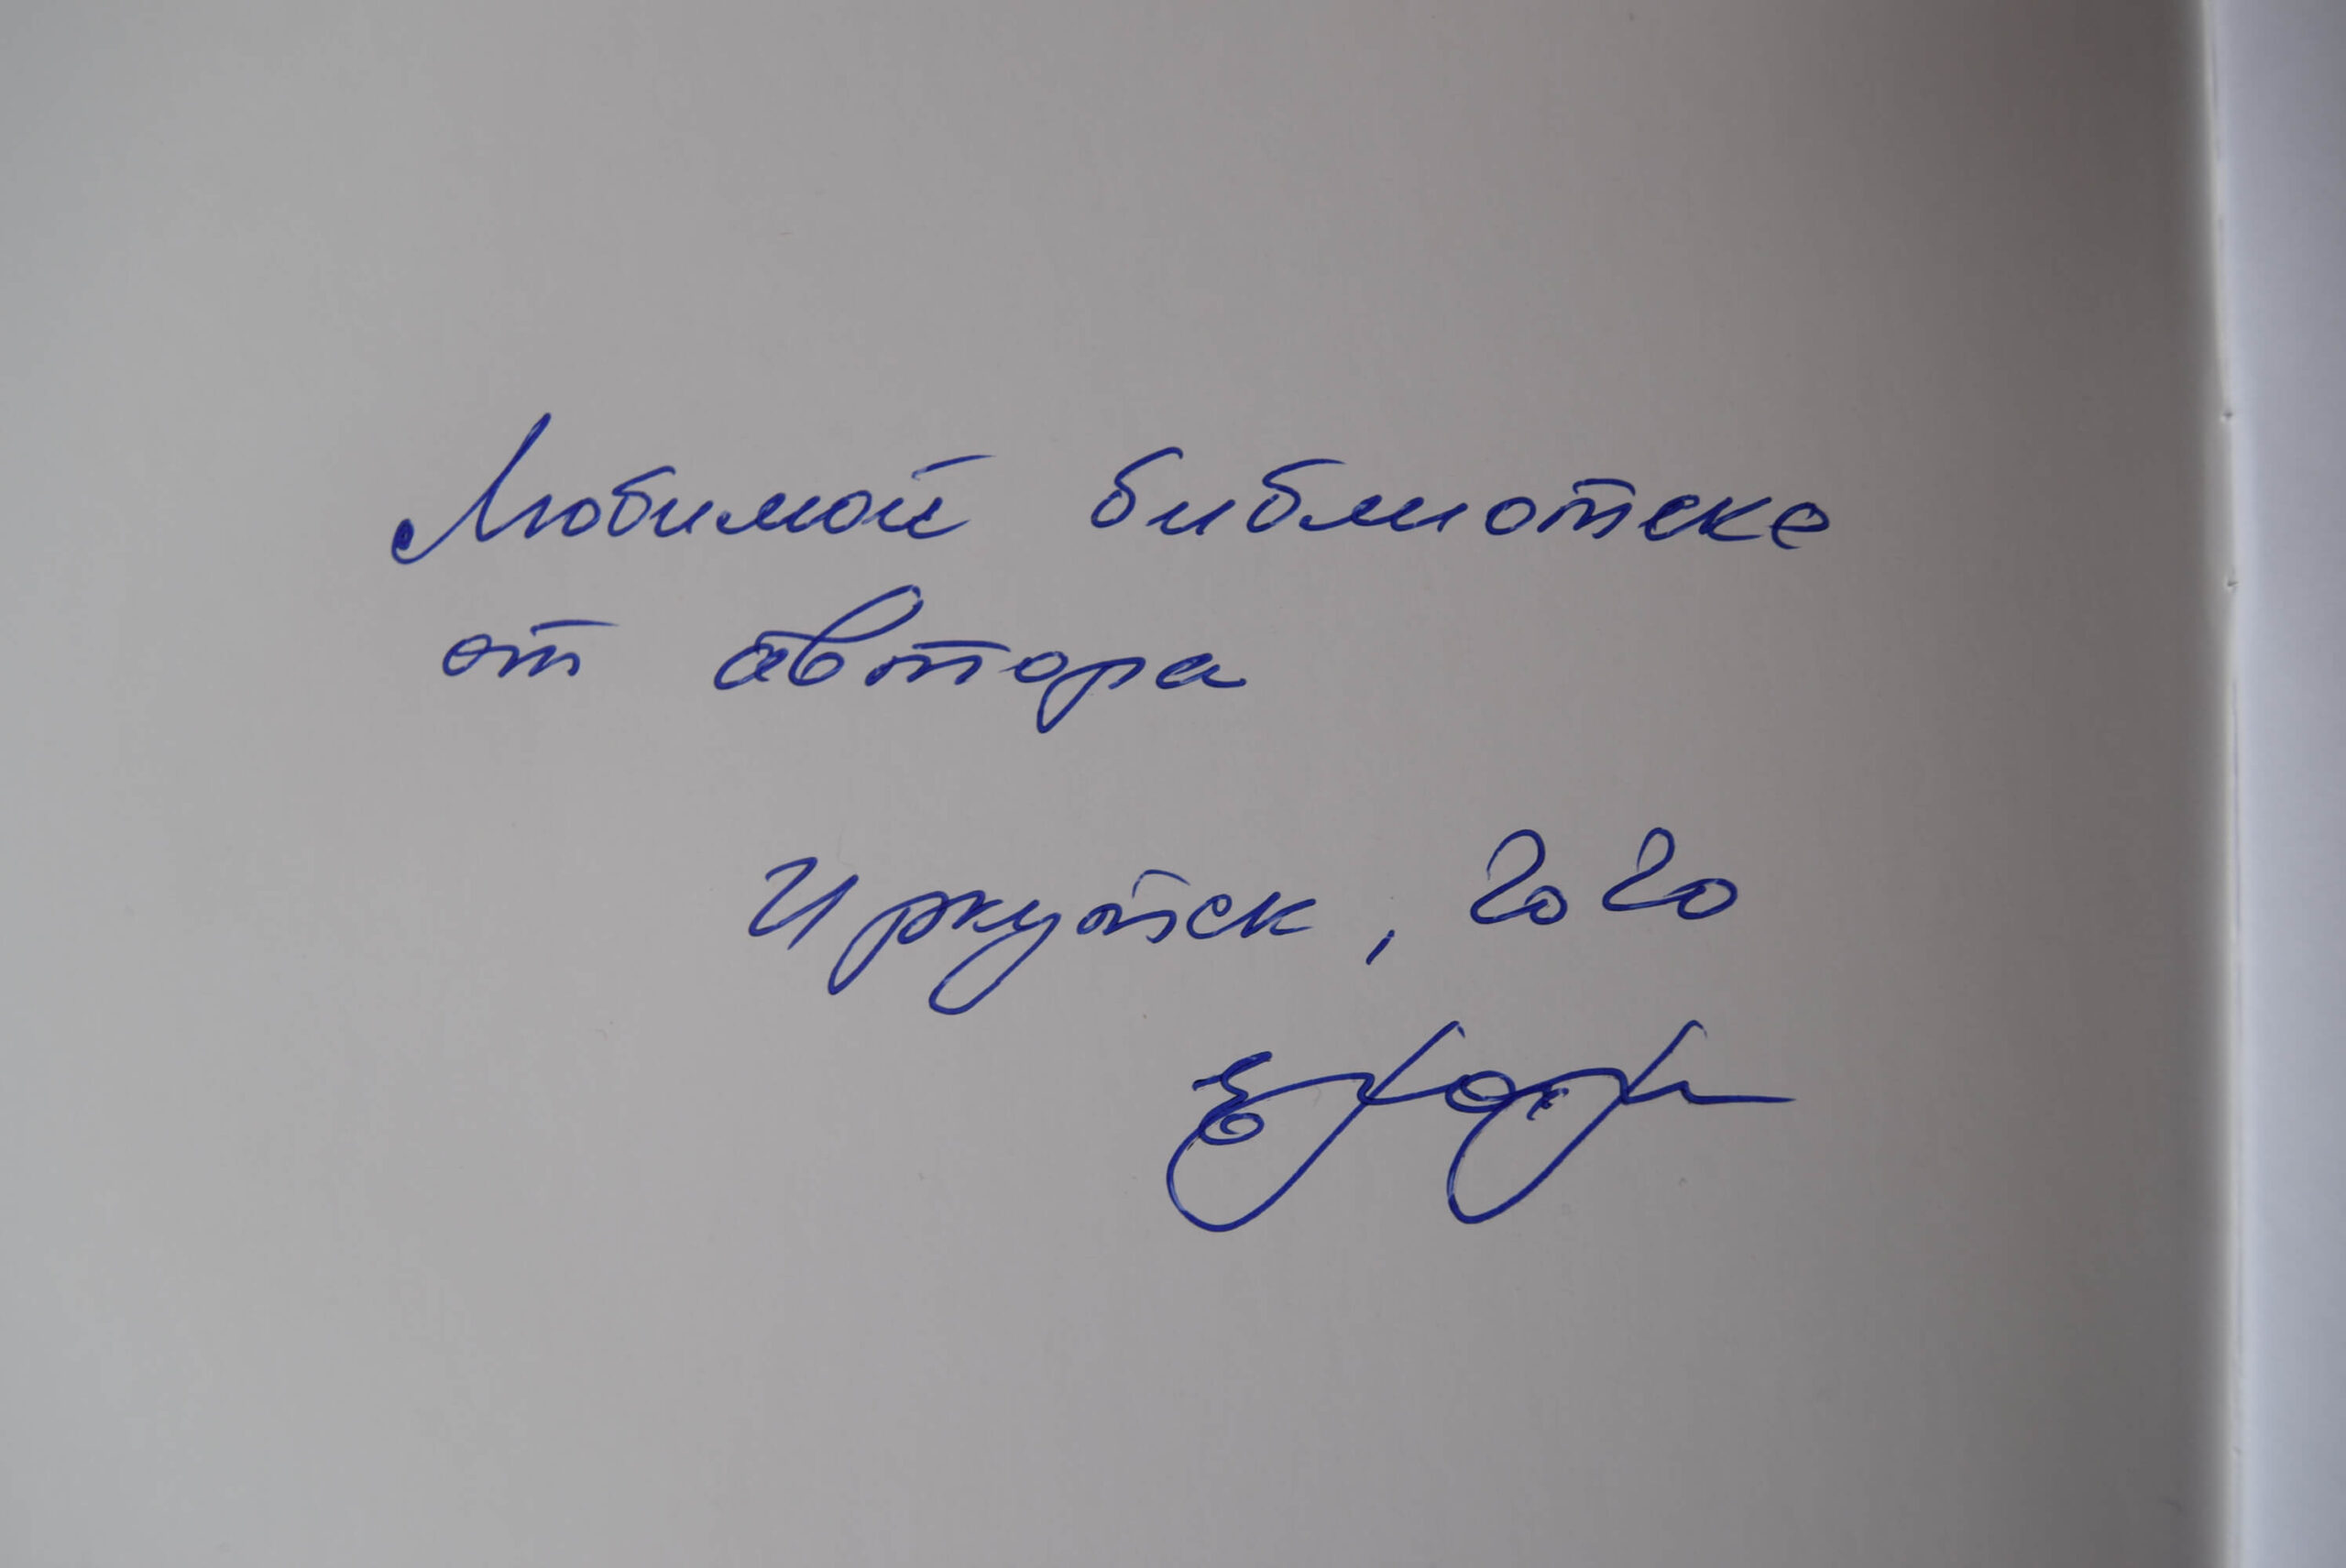 Любимой библиотеке
от автора
Иркутск, 2020